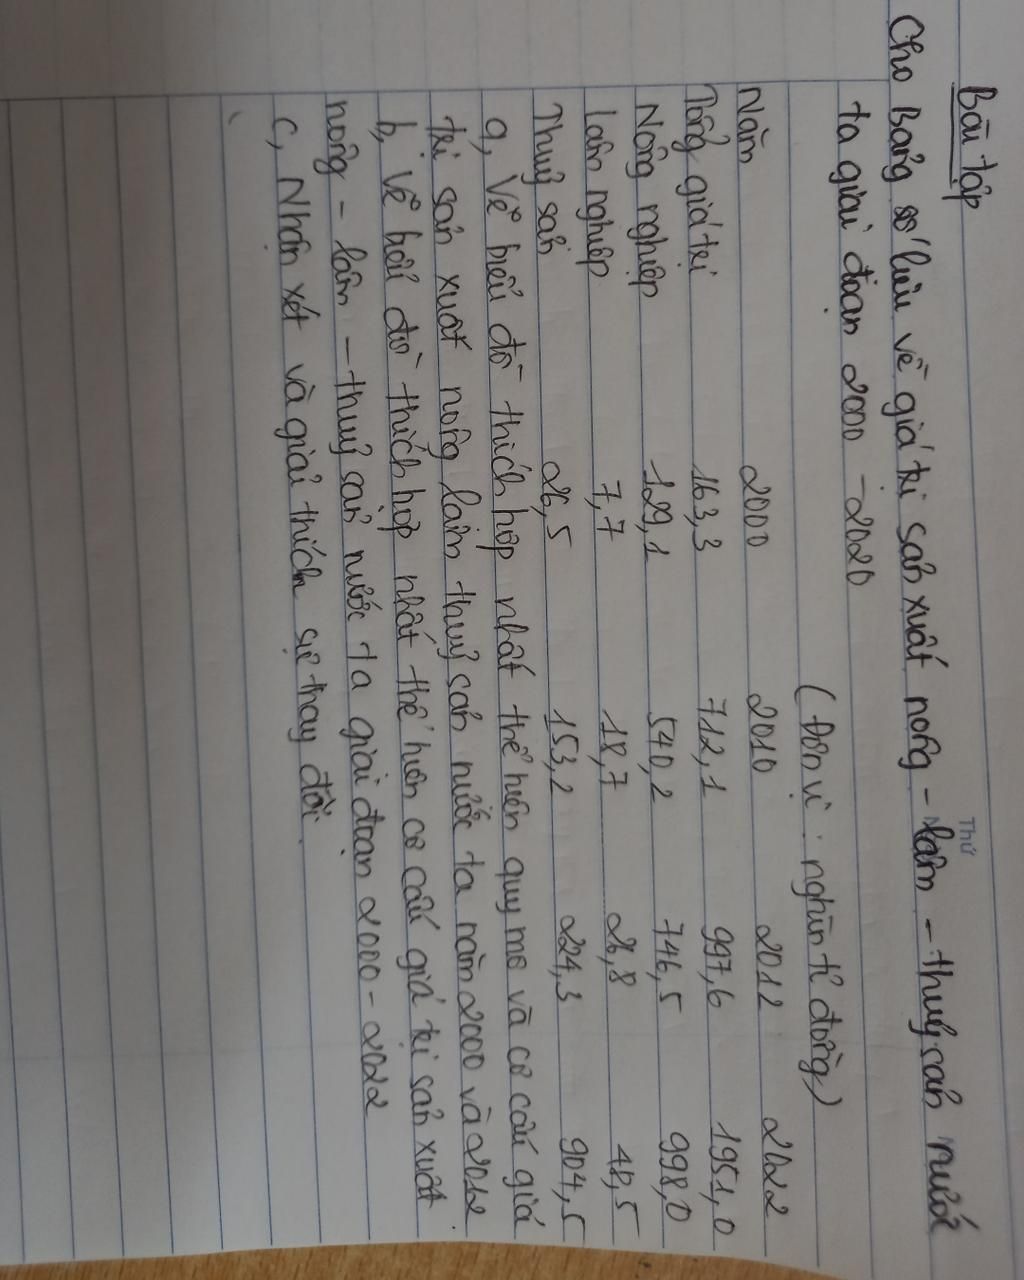 Thứ
Bài tập
Cho Bảng số liệu về giá trị sản xuất nong - lâm - thuỷ sản nước
ta giai đoạn 2000 - 2020
(Đơn vị : nghìn tỉ đồng)
Năm 2000 2010 2012 2022
Tổng giá trị 163,3 712,1 997,6 1951,0
Nông nghiệp 129,1 540,2 746,5 998,0
Lâm nghiệp 7,7 18,7 26,8 48,5
Thuỷ sản 26,5 153,2 224,3 904,5
a, Vẽ biểu đồ thích hợp nhất thể hiện quy mô và cơ cấu giá
trị sản xuất nong lâm thuỷ sản nước ta năm 2000 và 2012
b, Vẽ bái đồ thích hợp nhất thể hiện cơ cấu giá trị sản xuất
nong - lâm - thuỷ sản nước ta giai đoạn 2000 - 2022
c, Nhận xét và giải thích sự thay đổi.